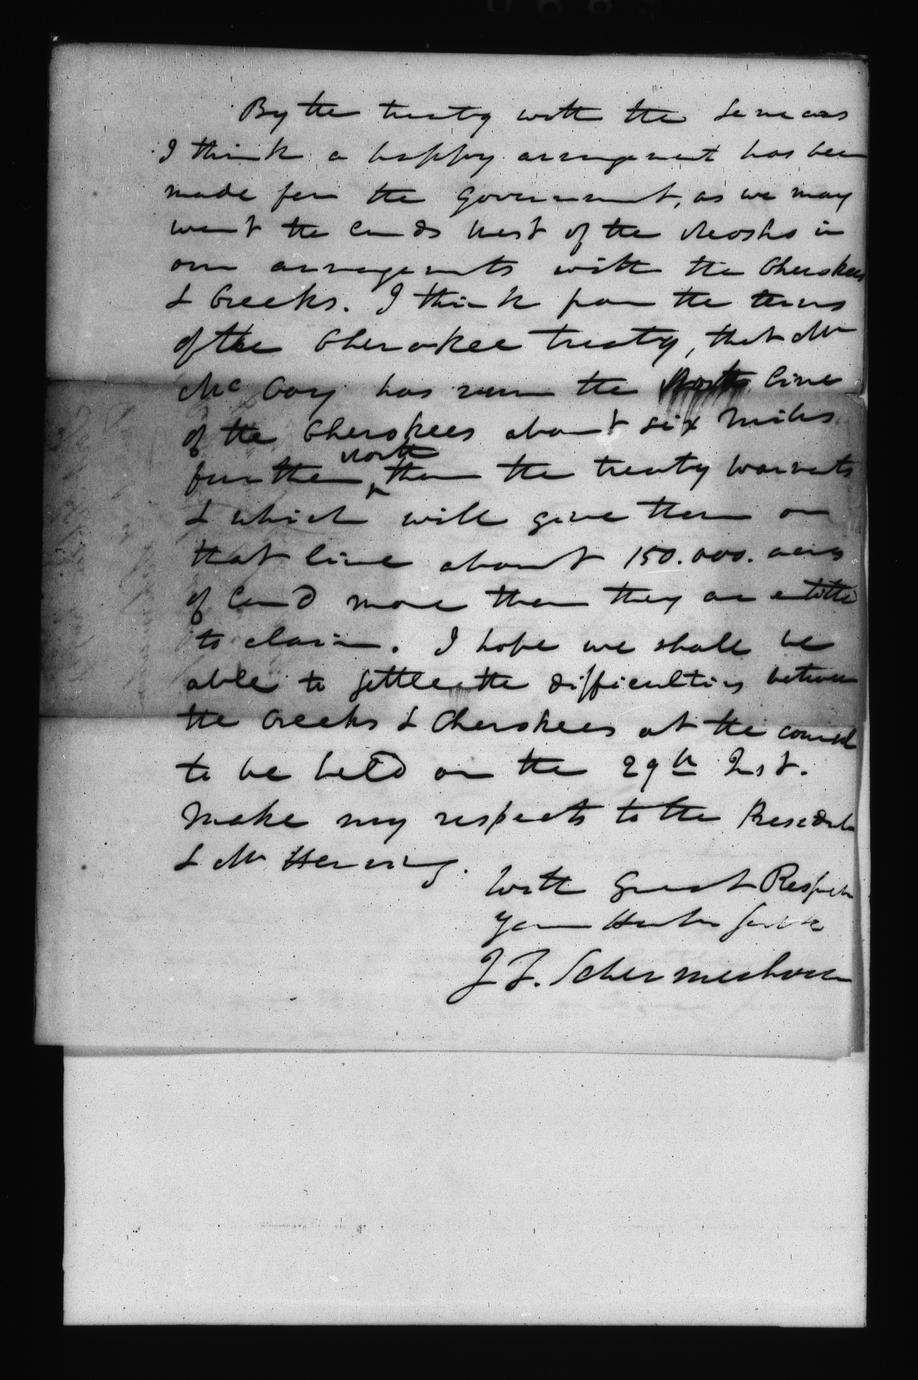 By the treaty with the Senecas
I think a happy arrangement has been
made for the Government, as we may
want the lands West of the Neosho in
our arrangements with the Cherokees
& Creeks. I think from the terms
of the Cherokee treaty, that Mr
McCoy has run the North line
of the Cherokees about six miles
further north than the treaty warrants
& which will give them on
that line about 150.000. acres
of land more than they are entitled
to claim. I hope we shall be
able to settle the difficulties between
the Creeks & Cherokees at the council
to be held on the 29th Inst.
Make my respects to the President
& Mr Herring.
With Great Respect
Your Humbe Servt
J. F. Schermerhorn